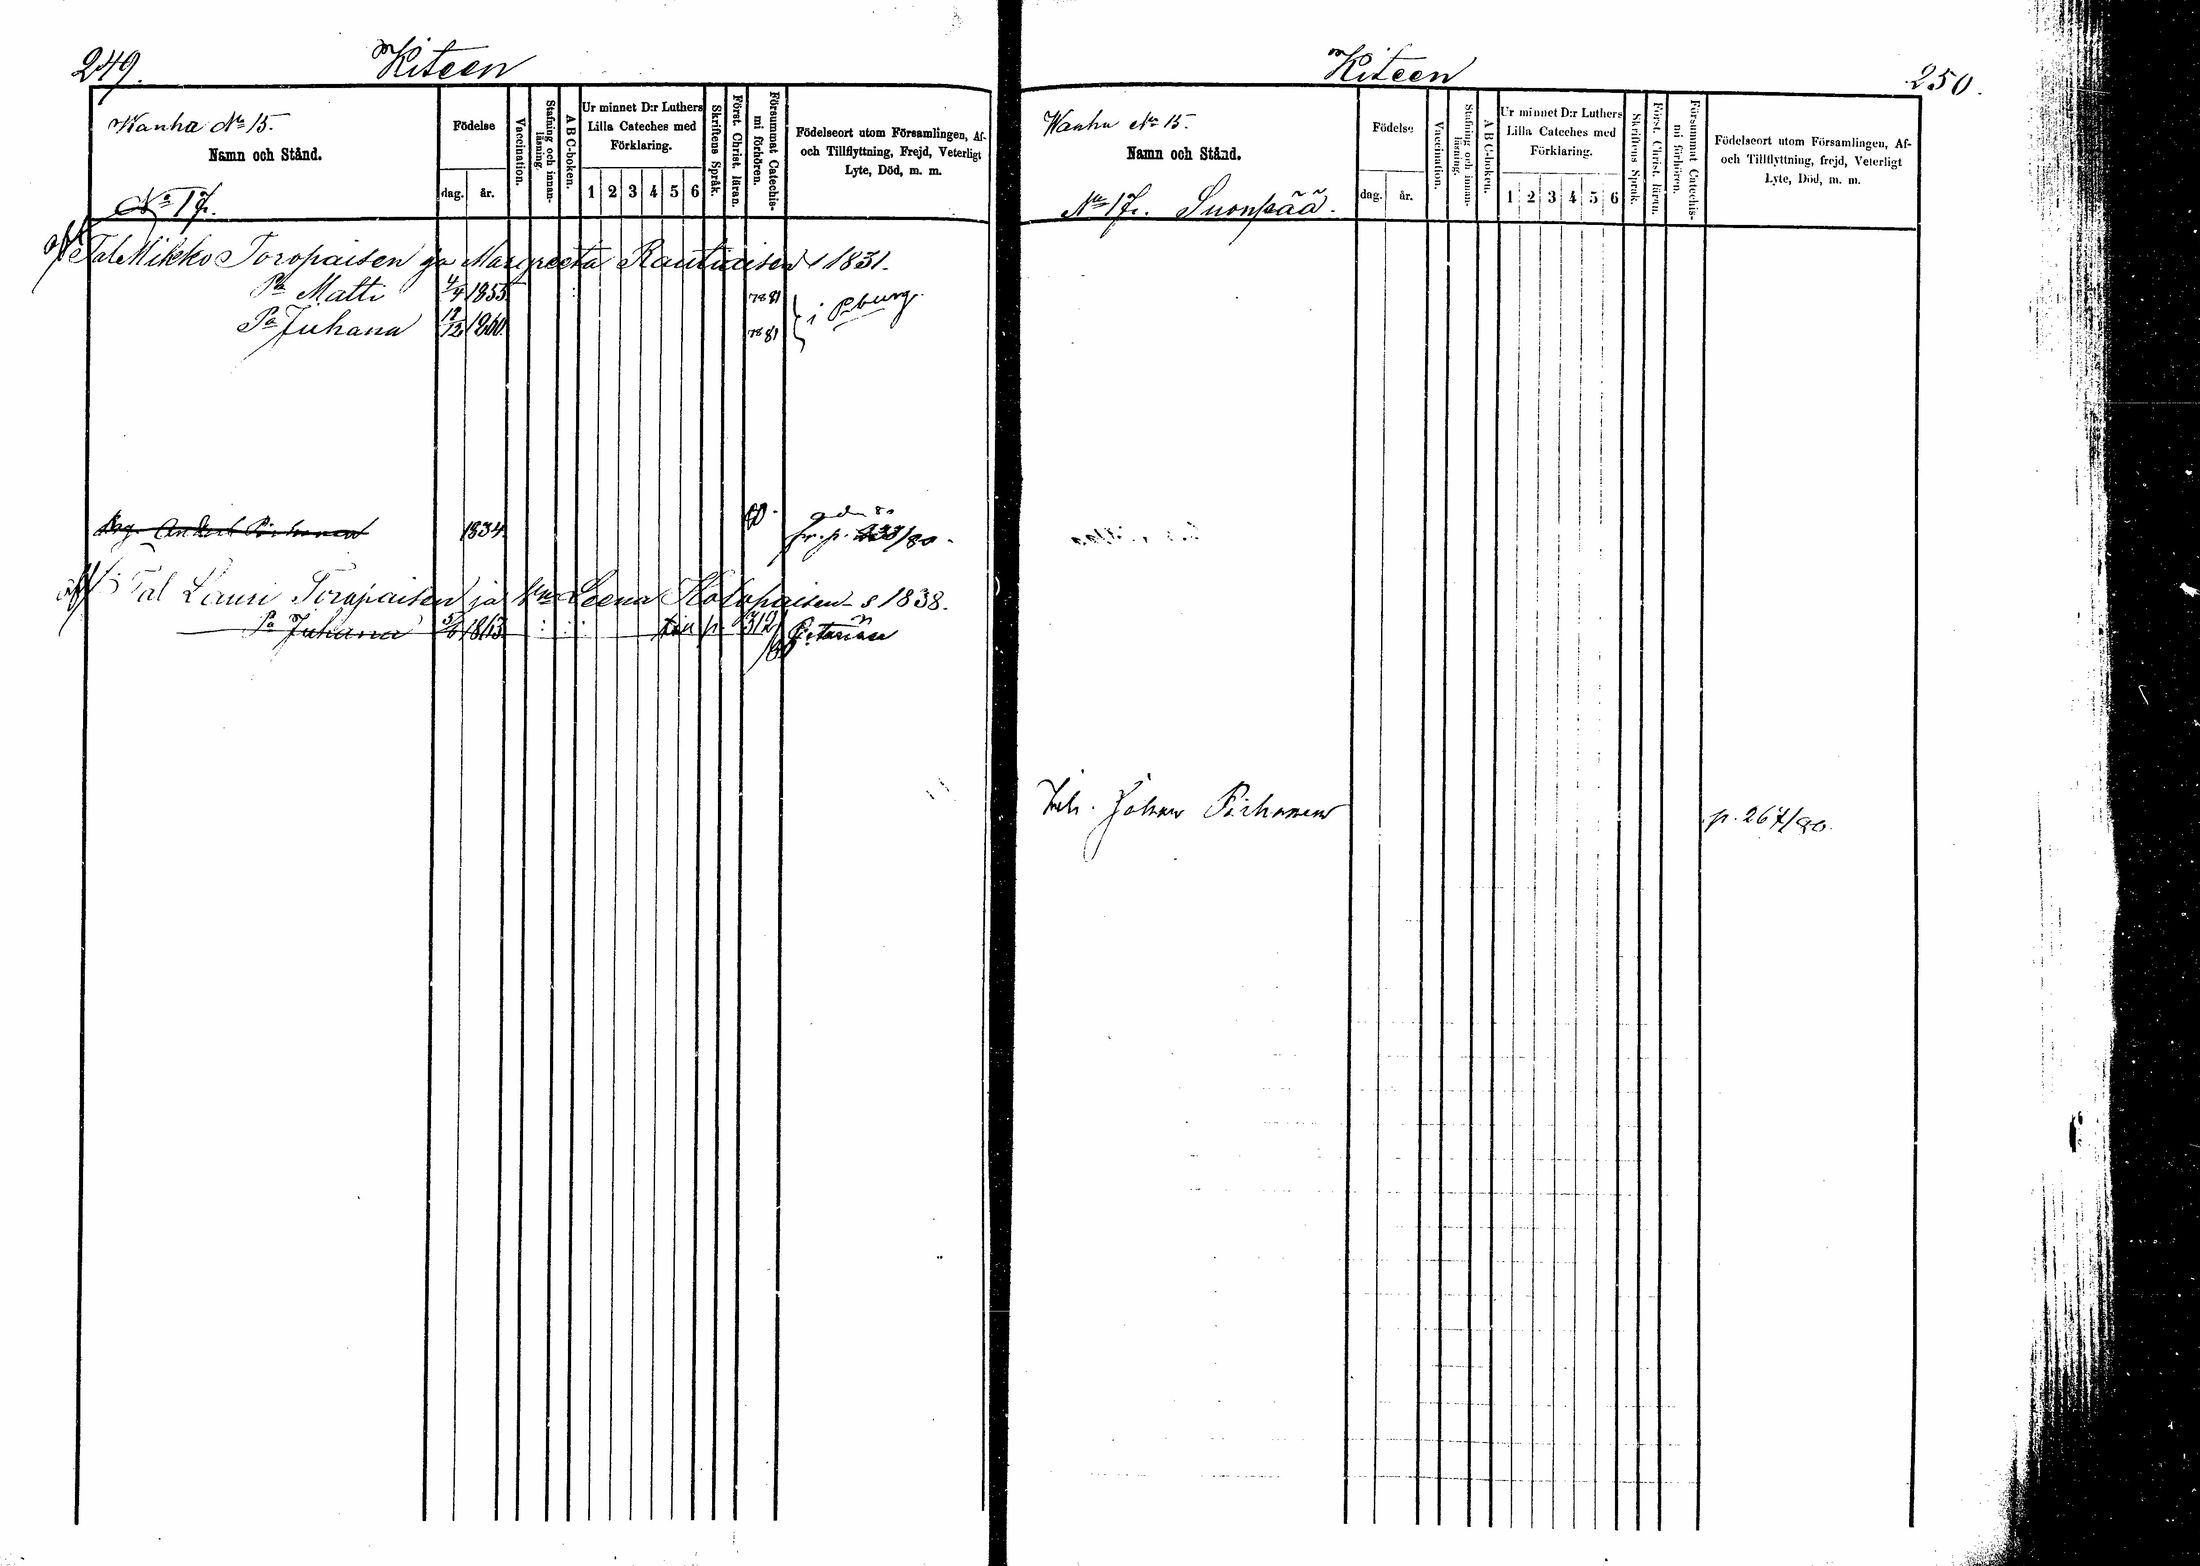 249.
Kiteen
Wanha No 15.
Namn och Stånd.
No 17.
Födelse
dag.
år.
Vaccination.
Stafning och innan-
läsning.
A B C-boken.
Ur minnet D:r Luthers
Lilla Cateches med
Förklaring.
1 2 3 4 5 6
Skriftens Språk.
Först. Christ. läran.
Försummat Catechis-
mi förhören.
Födelseort utom Församlingen, Af-
och Tillflyttning, Frejd, Veterligt
Lyte, Död, m. m.
Tal Mikko Toropaisen ja Margreeta Rautiaisen 1831.
Pa Matti 4/4 1855 78 81
i Pburg.
Pa Juhana 12/12 1860 78 81
1834 80.
fr. p. /80.
Tal Lauri Toropaisen ja Leena s 1838.
Pa Juhana 1863 p. 312
Kiteen
250.
Wanha No 15.
Namn och Stånd.
No 17. Suonpää.
Födelse
dag.
år.
Vaccination.
Stafning och innan-
läsning.
A B C-boken.
Ur minnet D:r Luthers
Lilla Cateches med
Förklaring.
1 2 3 4 5 6
Skriftens Språk.
Först. Christ. läran.
Försummat Catechis-
mi förhören.
Födelseort utom Församlingen, Af-
och Tillflyttning, frejd, Veterligt
Lyte, Död, m. m.
Johan Pirhonen p. 267/80.